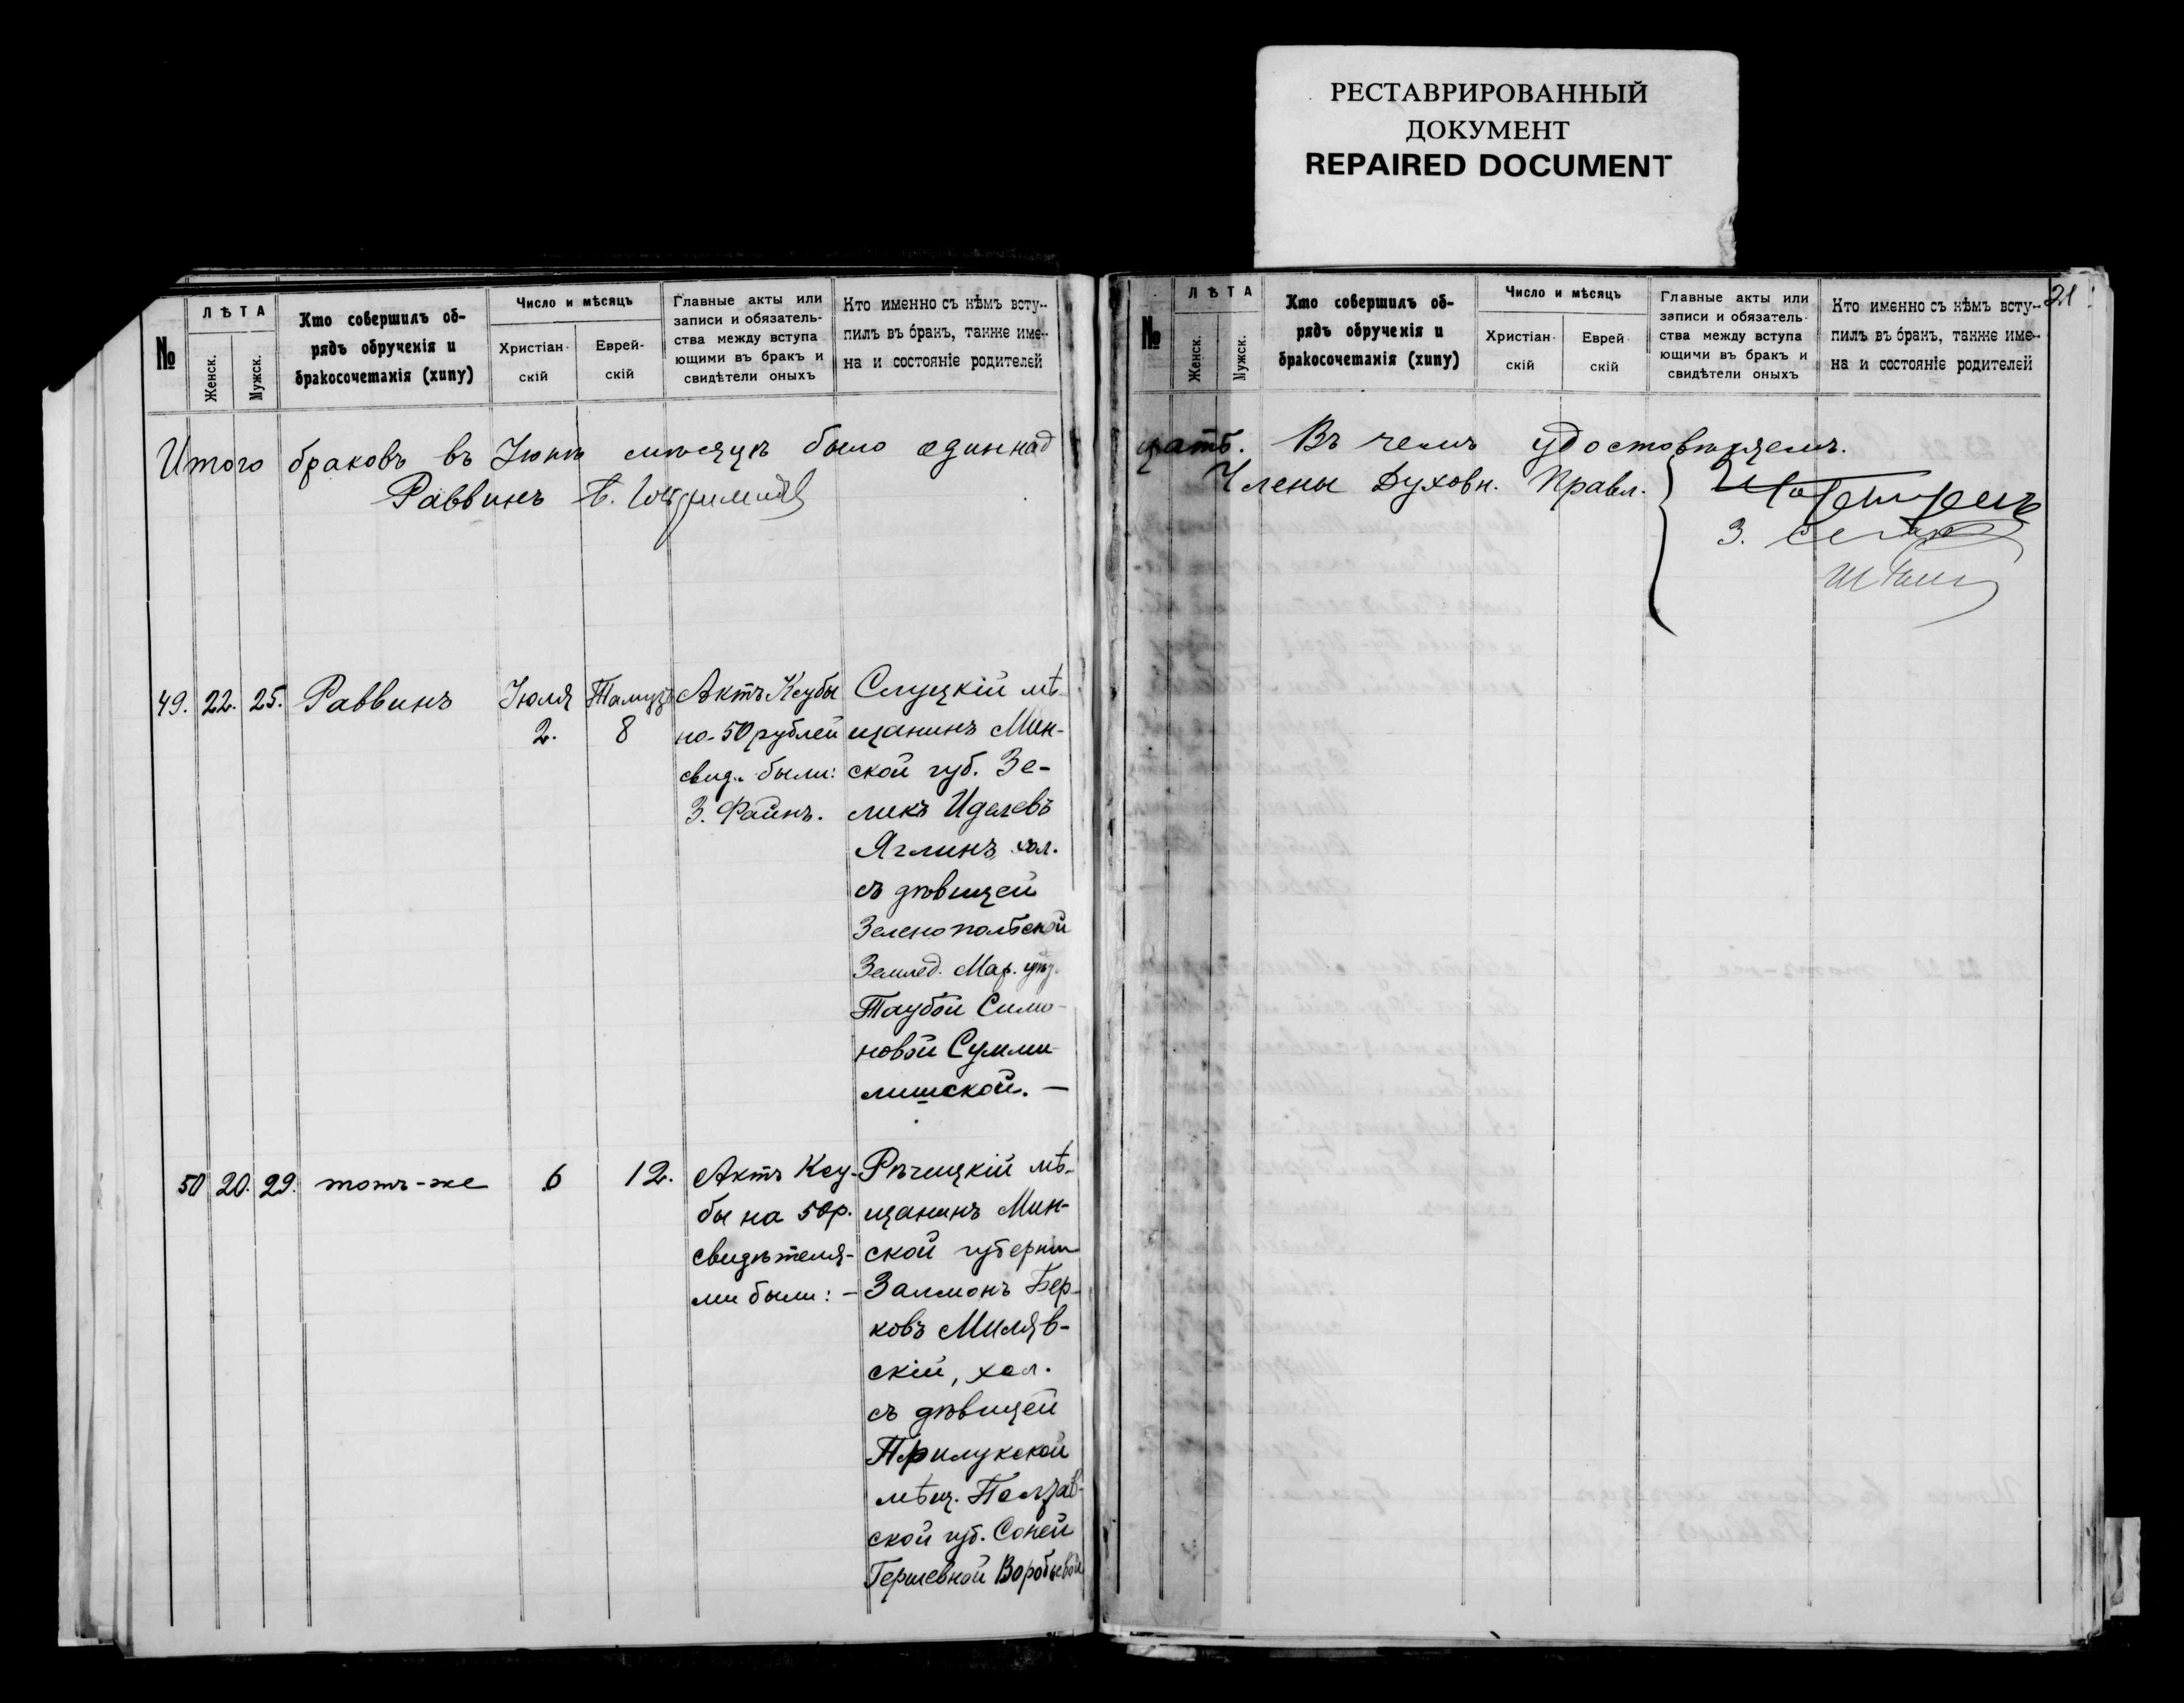 РЕСТАВРИРОВАННЫЙ
ДОКУМЕНТ
REPAIRED DOCUMENT
№
ЛѢТА
Женск.
Мужск.
Кто совершилъ об-
рядъ обрученія и
бракосочетанія (хипу)
Число и мѣсяцъ
Христіан-
скій
Еврей-
скій
Главные акты или
записи и обязатель-
ства между вступа
ющими въ бракъ и
свидѣтели оныхъ
Кто именно съ нѣмъ всту-
пилъ въ бракъ, также име-
на и состояніе родителей
Итого браковъ въ Іюнѣ мѣсяцѣ было одиннад
Раввинъ
49. 22. 25. Раввинъ
Іюля
2.
Тамузъ
8
Актъ Ксубы
на 50 рублей
свид. были:
З. Файнъ.
Слуцкій мѣ-
щанинъ Мин-
ской губ. Зе-
ликъ Иделевъ
Яглинъ хол.
съ дѣвицей
Зеленопольской
Землед. Мар. уѣз.
Таубой Симо-
новой Сумми-
лишской. —
50 20. 29. тотъ-же 6 12.
Актъ Ксу-
бы на 50 р.
свидѣтеля-
ми были: —
Рѣчицкій мѣ-
щанинъ Мин-
ской губерніи
Залмонъ Бер-
ковъ Миляв-
скій, хол.
съ дѣвицей
Прилукской
мѣщ. Полтав-
ской губ. Соней
Гершевной Воробьевой
21
№
ЛѢТА
Женск.
Мужск.
Кто совершилъ об-
рядъ обрученія и
бракосочетанія (хипу)
Число и мѣсяцъ
Христіан-
скій
Еврей
скій
Главные акты или
записи и обязатель-
ства между вступа
ющими въ бракъ и
свидѣтели оныхъ
Кто именно съ нѣмъ всту-
пилъ въ бракъ, также име-
на и состояніе родителей
цать. Въ чемъ удостовѣряемъ.
Члены Духовн. Правл.
З.